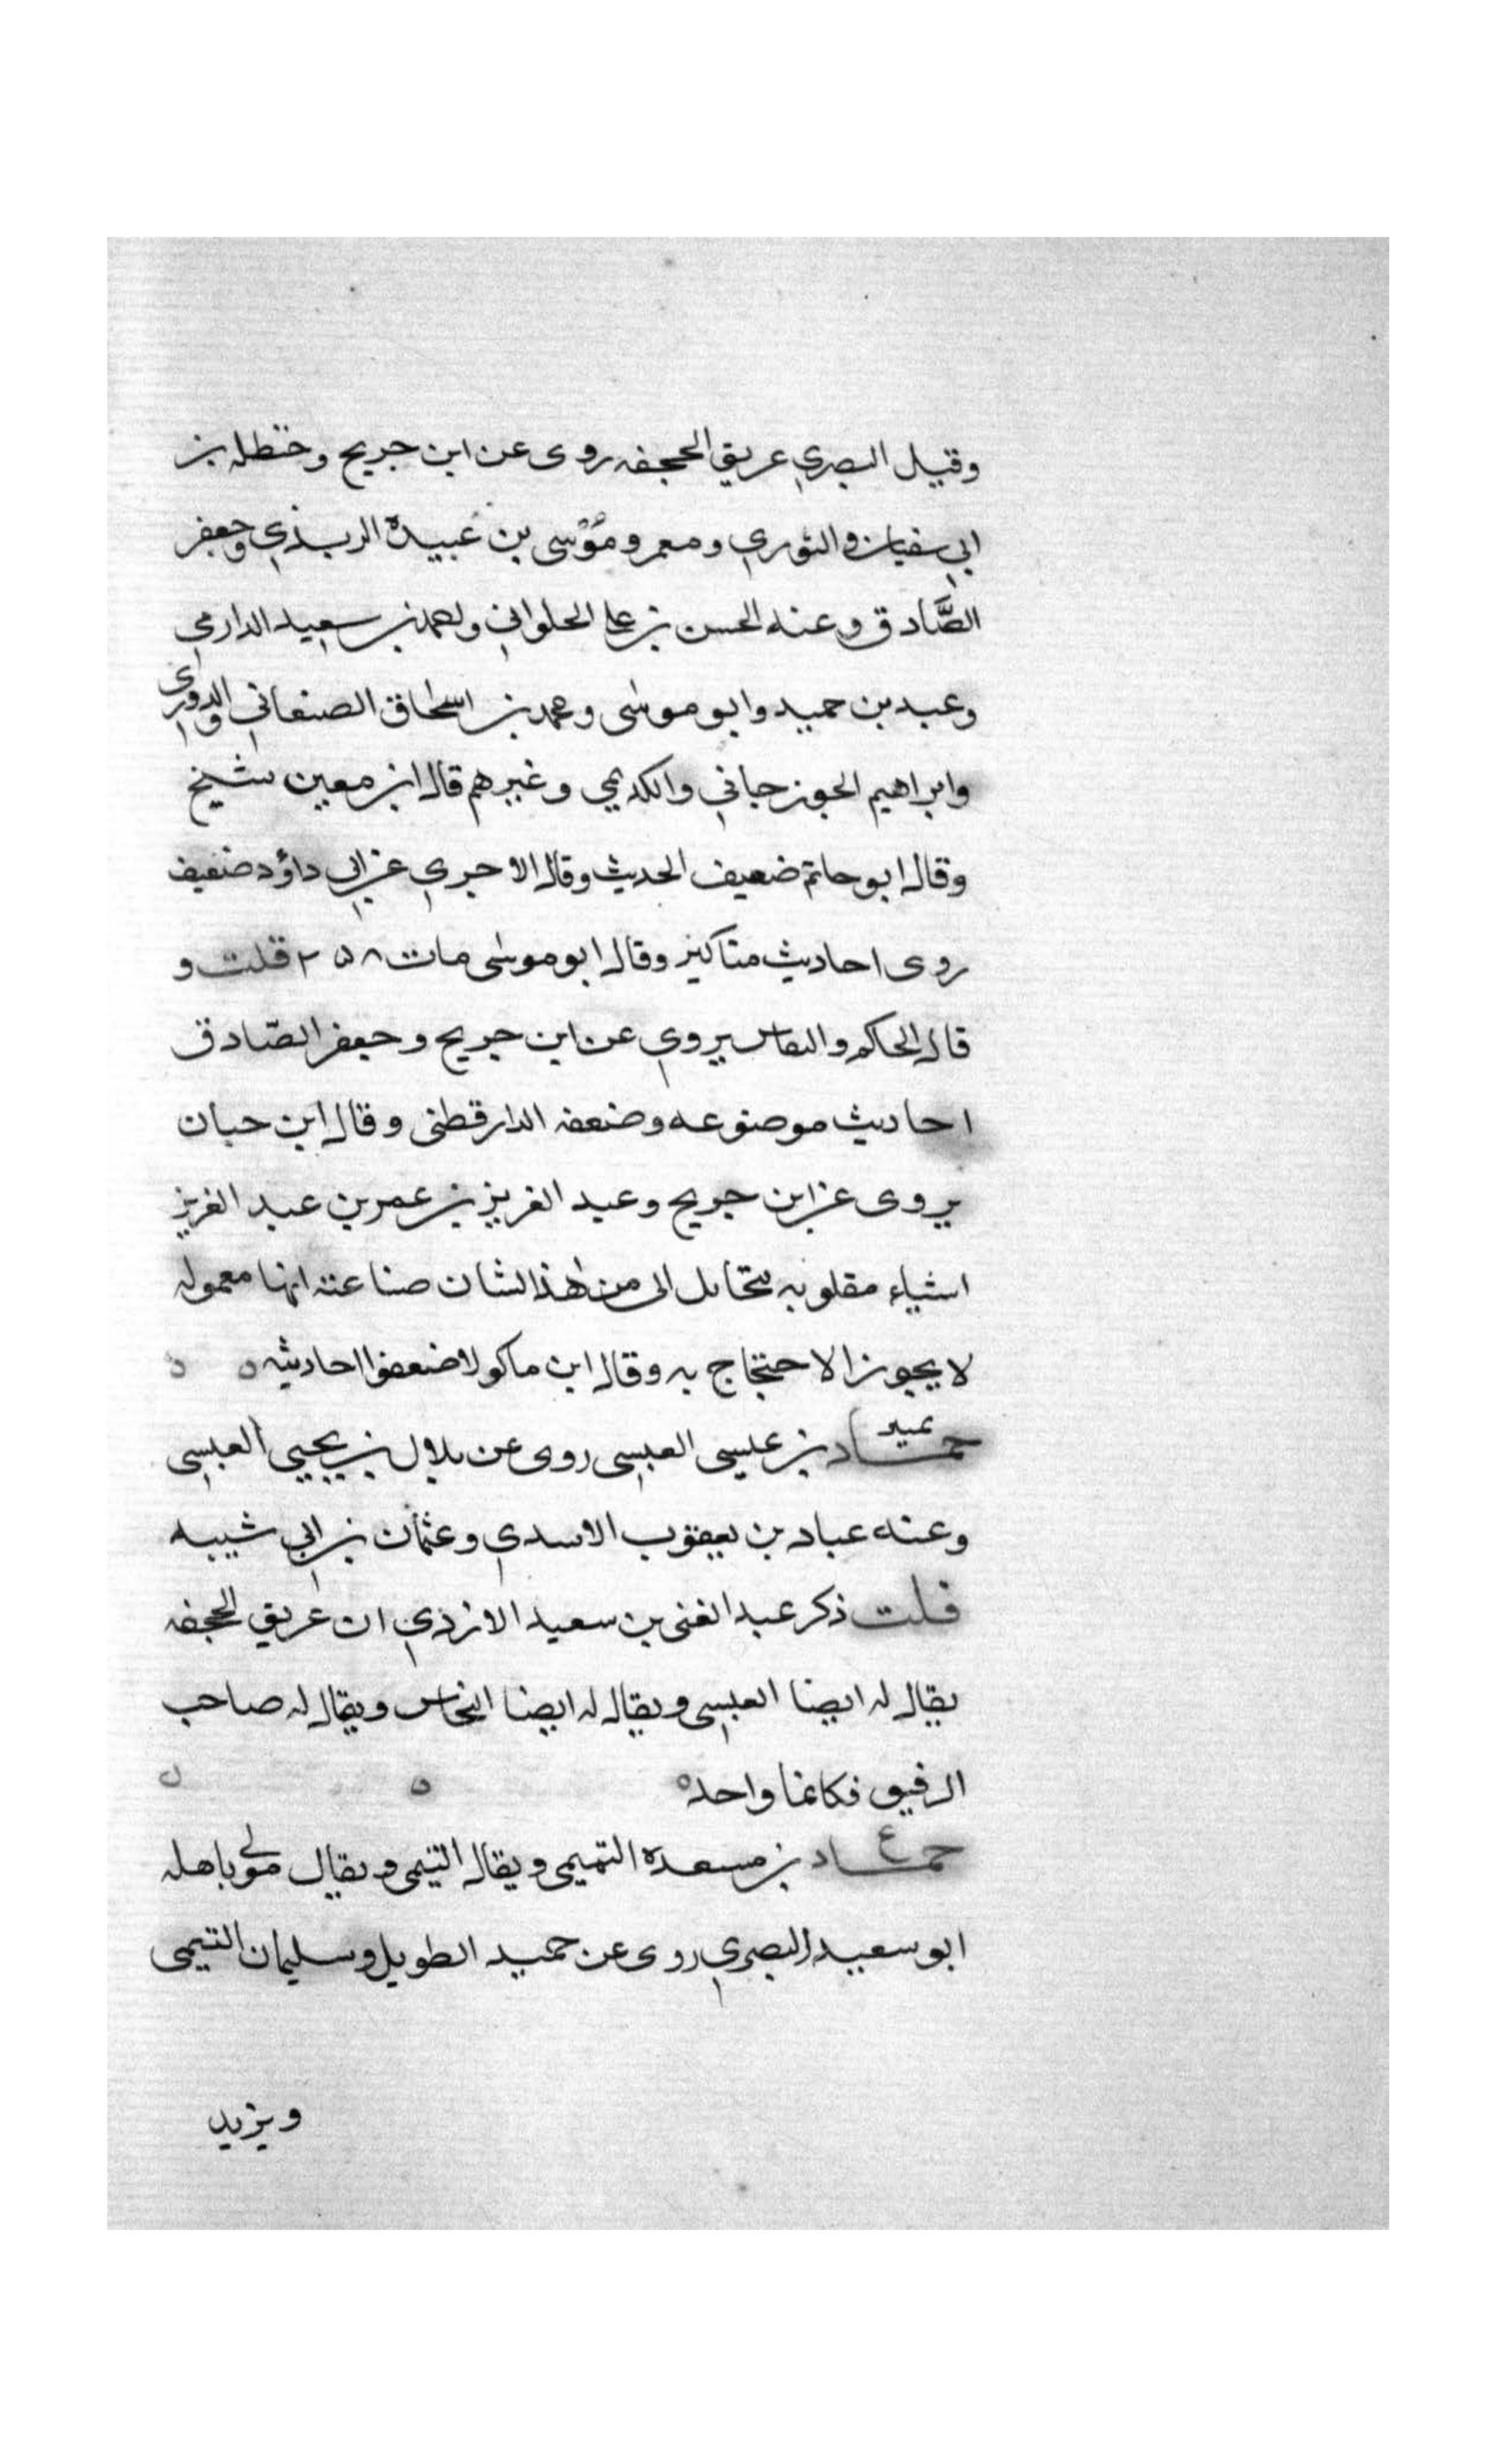 وقيل البصري غريق الجحفه روى عن ابن جريج وحنظله بن
ابي سفيان والثوري ومعمر وموسى بن عبيدة الربذي وجعفر
الصادق وعنه الحسن بن علي الحلواني واحمد بن سعيد الدارمي
وعبد بن حميد وابو موسى ومحمد بن اسحاق الصنعاني والدوري
وابراهيم الجوزجاني والكديمي وغيرهم قال ابن معين شيخ
وقال ابو حاتم ضعيف الحديث وقال الاجري عن ابي داؤد ضعيف
روى احاديث مناكير وقال ابو موسى مات ٢٥٨ قلت و
قال الحاكم والنقاش يروي عن ابن جريج وجعفر الصادق
احاديث موضوعه وضعفه الدارقطنى وقال ابن حبان
يروى عن ابن جريج وعبد العزيز بن عمر بن عبد العزيز
اشياء مقلوبه تتخايل الى من هذا الشان صناعته انها معموله
لا يجوز الاحتجاج به وقال ابن ماكولا ضعفوا احاديثه ٥ ٥
حمـــاد بن عيسى العبسى روى عن بلال بن يحيى العبسى
وعنه عباد بن يعقوب الاسدي وعثمان بن ابي شيبه
قلت ذكر عبد الغنى بن سعيد الازدي ان غريق الجحفه
يقال له ايضا العبسى ويقال له ايضا النخاس ويقال له صاحب
الرقيق فكانما واحد ٥ ٥ ٥
ع
حمـــاد بن مسعدة التميمى ويقال التيمى ويقال مولى باهله
ابو سعيد البصري روى عن حميد الطويل وسليمان التيمى
ويزيد